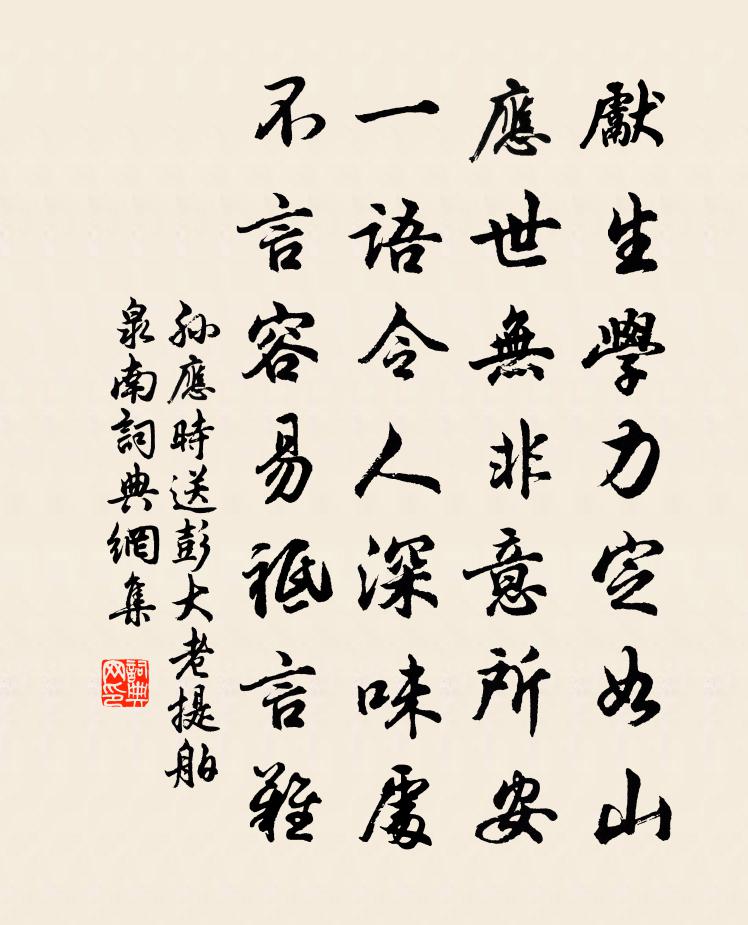 獻生學力定如山
應世無非意所安
一語令人深味處
不言容易祗言難
孫應時送彭大老提舶
泉南詞典網集
詞典網印